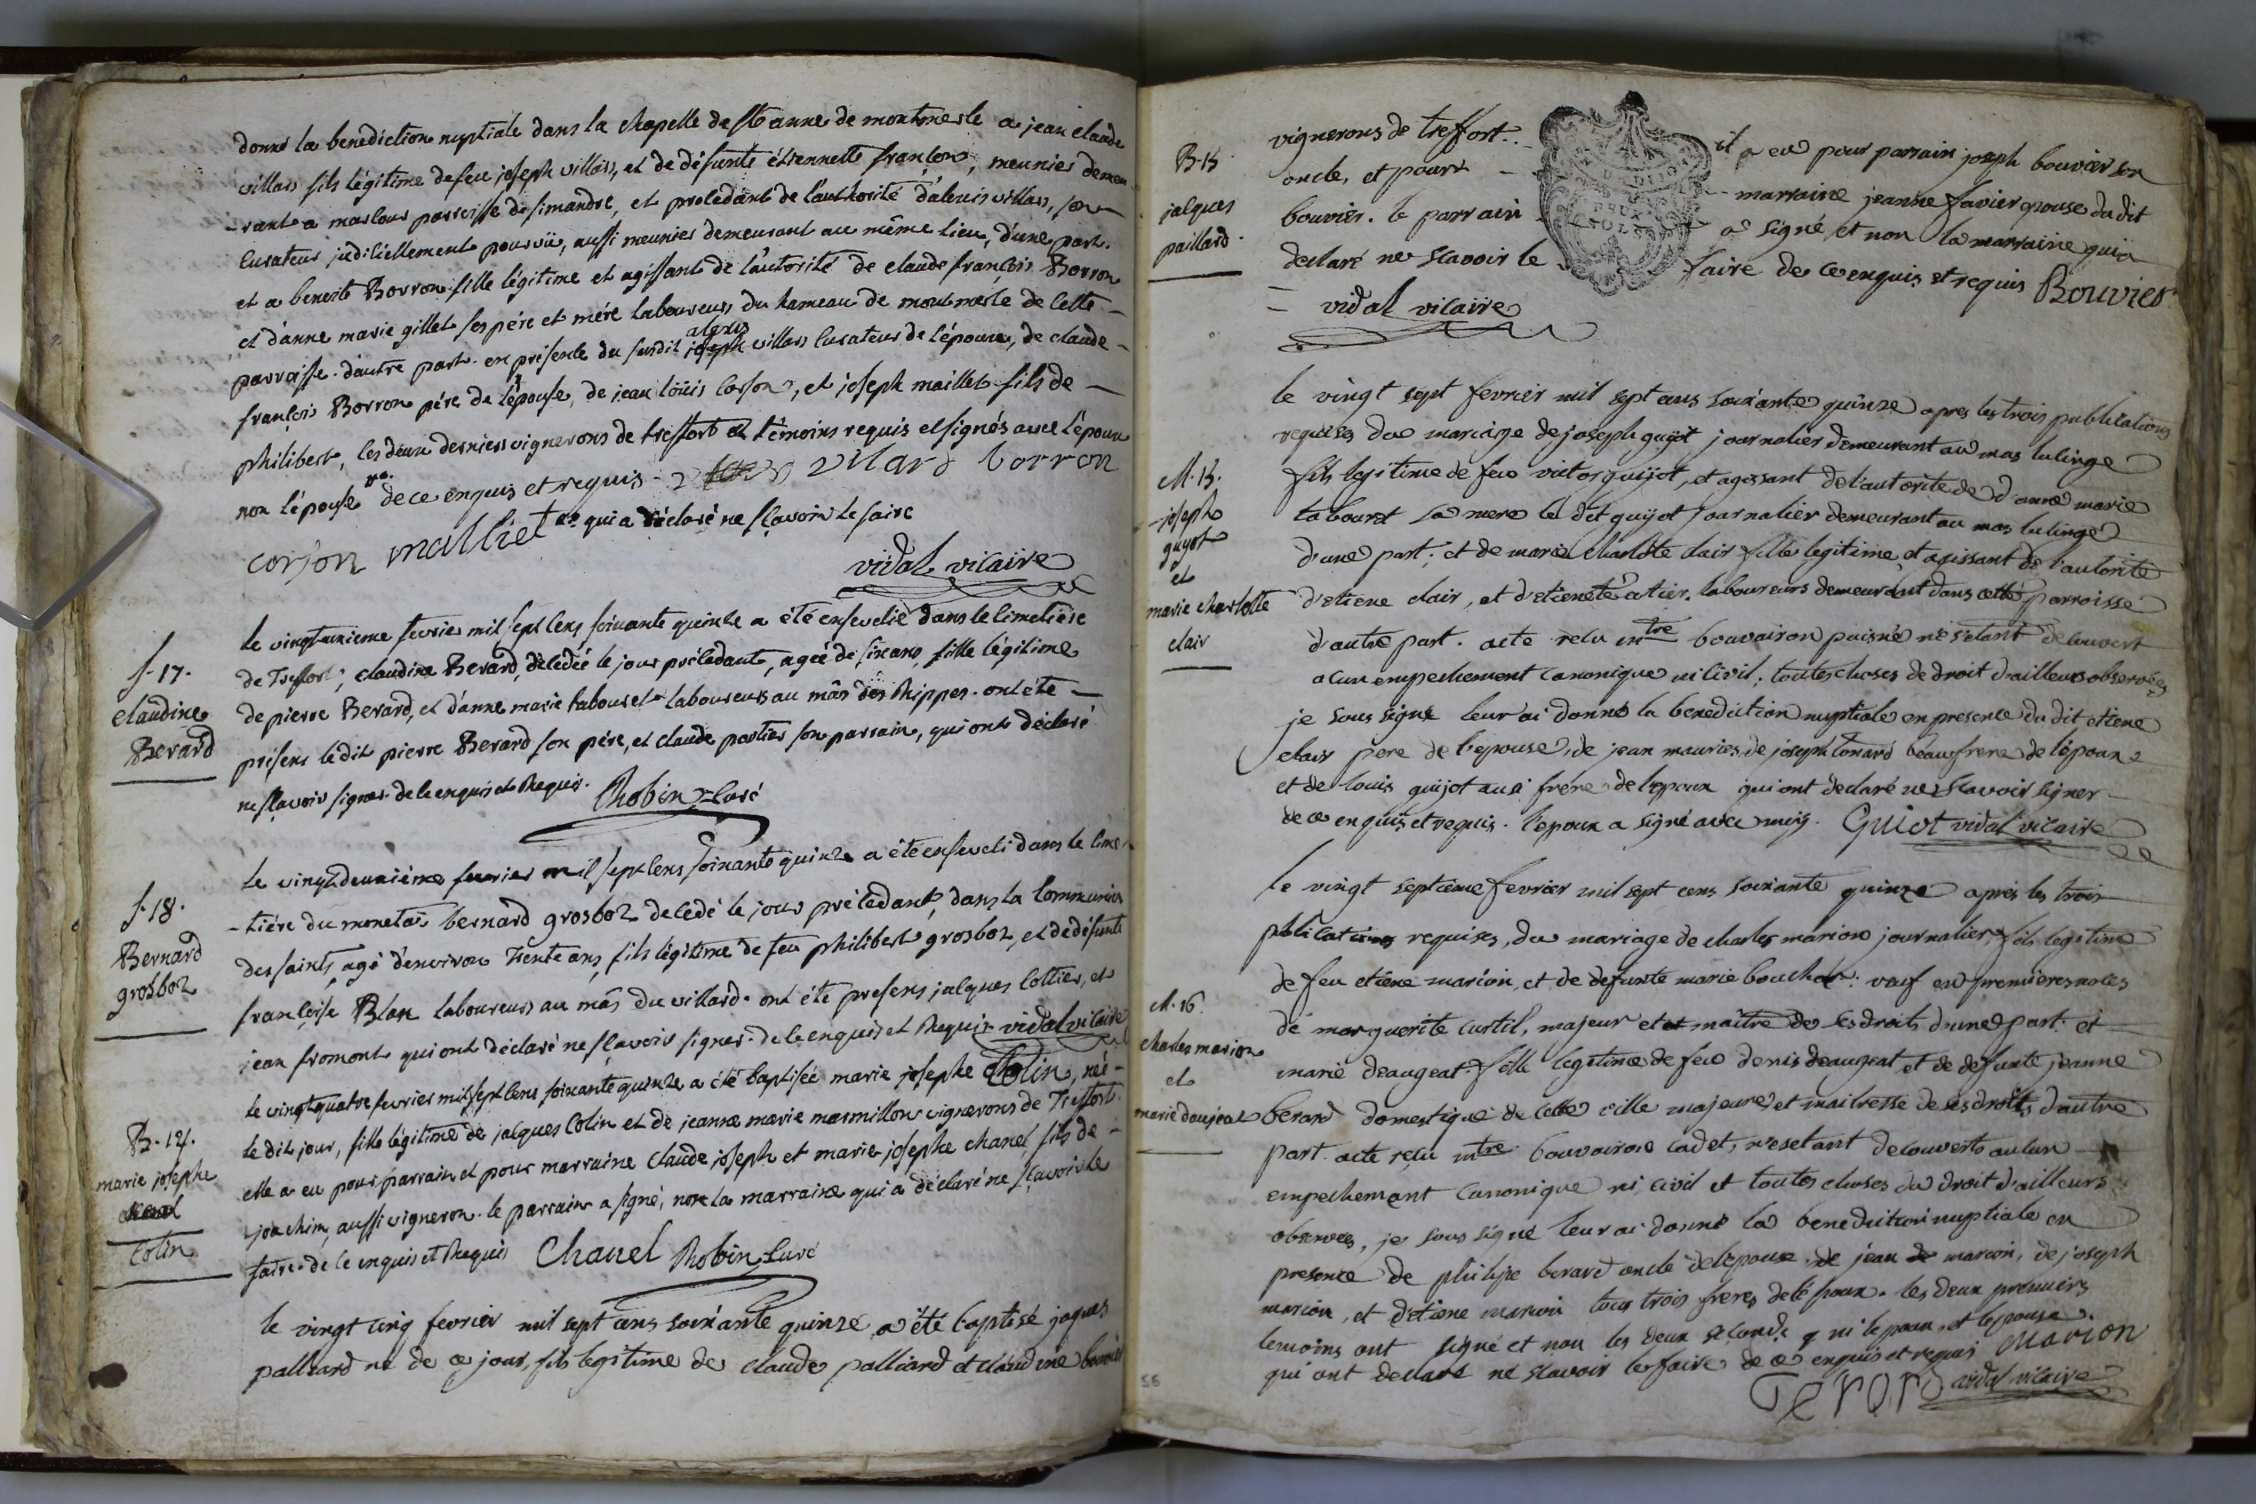 donné la benediction nuptiale dans la chapelle de ste anne de montmerle a jean claude
villars fils légitime de feu joseph villars, et de défunte étiennette françon, meunier demeu
-rant a marlour parroisse de simandre, et procedant de l'authorité d'alexis villars, son
curateur judiciellement pourvû, aussi meunier demeurant au même lieu, d'une part.
et a benoite Borron fille légitime et agissant de l'autorité de claude françois Borron
et d'anne marie gillet ses pére et mére laboureurs du hameau de montmerle de cette
parroisse. d'autre part. en présence du susdit alexis villars curateur de l'époux, de claude
françois Borron pére de l'épouse, de jean loüis corson, et joseph maillet fils de
philibert, les deux derniers vignerons de treffort témoins requis et signés avec l'époux
non l'épouse de ce enquis et requis. vilard borron
corson malliet qui a déclaré ne sçavoir le faire
vidal vicaire
f. 17.
claudine
Berard
le vingtunieme fevrier mil sept cens soixante quinze a été ensevelie dans le cimetière
de Treffort, claudine Berard, décédée le jour précédant, agée de six ans, fille légitime
de pierre Berard, et d'anne marie tabouret laboureurs au mâs des Phippes. ont été
présens ledit pierre Berard son pére, et claude portier son parrain, qui ont déclaré
ne sçavoir signer de ce enquis et Requis. Robin Curé
f. 18.
Bernard
grosboz
le vingtdeuxiéme fevrier mil sept cens soixante quinze a été enseveli dans le cime
-tiére du monetaÿ bernard grosboz decedé le jour précédant, dans la Communion
des saints, agé d'environ Trente ans, fils légitime de feu philibert grosboz, et de défunte
françoise Blan laboureurs au mâs du villard. ont été presens jacques cottier, et
jean fromont qui ont déclaré ne sçavoir signer. de ce enquis et Requis vidal vicaire
B. 14.
marie josephe
Colin
le vingtquatre fevrier mil sept cens soixante quinze a été baptisée marie josephe Colin, née
le dit jour, fille légitime de jacques Colin et de jeanne marie marmillon vignerons de Treffort.
elle a eu pour parrain et pour marraine claude joseph et marie josephe chanel fils de
joachim, aussi vigneron. le parrain a signé, non la marraine qui a déclaré ne sçavoir le
faire. de ce enquis et Requis Chanel Robin Curé
le vingt cinq fevrier mil sept cens soixante quinze a été baptisé jaques
palliard né de ce jour, fils legitime de claude palliard et claudine bouvier
B. 15
jacques
paillard.
vignerons de treffort. il a eu pour parrain joseph bouvier son
oncle, et pour marraine jeanne favier epouse du dit
bouvier. le parrain a signé et non la marraine qui a
declaré ne scavoir le faire de ce enquis et requis Bouvier
vidal vicaire
M. 15.
joseph
guyot
et
marie charlotte
clair
le vingt sept fevrier mil sept cens soixante quinze apres les trois publications
requises du mariage de joseph guyot journalier demeurant au mas lulinge
fils legitime de feu victor guijot, et agissant de l'autorité de d'anne marie
tabouret sa mere le dit guijot journalier demeurant au mas lulinge
d'une part; et de marie charlote clair fille legitime, et agissant de l'autorité
d'etiene clair, et d'etienete atier. laboureurs demeurant dans cette parroisse
d'autre part. acte reçu mtre bouvairon puisné ne s'etant decouvert
acun empechement canonique ni civil, toutes choses de droit d'ailleurs observées
je sous signé leur ai donné la benediction nuptiale en presence du dit etiene
clair pere de l'epouse, de jean mauries, de joseph beaufrere de l'epoux
et de louis guijot aussi frere de l'epoux qui ont declaré ne scavoir signer
de ce enquis et requis. l'epoux a signé avec moy. Guiot vidal vicaire
M. 16
charles marion
et
marie daujeat
le vingt septieme fevrier mil sept cens soixante quinze aprés les trois
publications requises, du mariage de charles marion journalier, fils legitime
de feu etiene marion, et de defunte marie bouchar: veuf en premieres noces
de marguerite curtil, majeur et maitre de ses droits d'une part. et
marie deaugeat fille legitime de feu denis deaugeat et de defunte jeanne
berard domestique de cette ville majeure, et maitresse de ses droits, d'autre
part. acte reçu mtre bouvairon cadet, n'esetant decouvert aucun
empechement canonique ni civil et toutes choses de droit d'ailleurs
observées, je sous signé leur ai donné la benediction nuptiale en
presence de philipe berard oncle de l'epouse, de jean marion, de joseph
marion, et d'etiene marion tous trois freres de l'epoux. les deux premiers
temoins ont signé et non les deux seconds q ni l'epoux, et l'epouse
qui ont declaré ne scavoir le faire de ce enquis et requis Marion
vidal vicaire
56